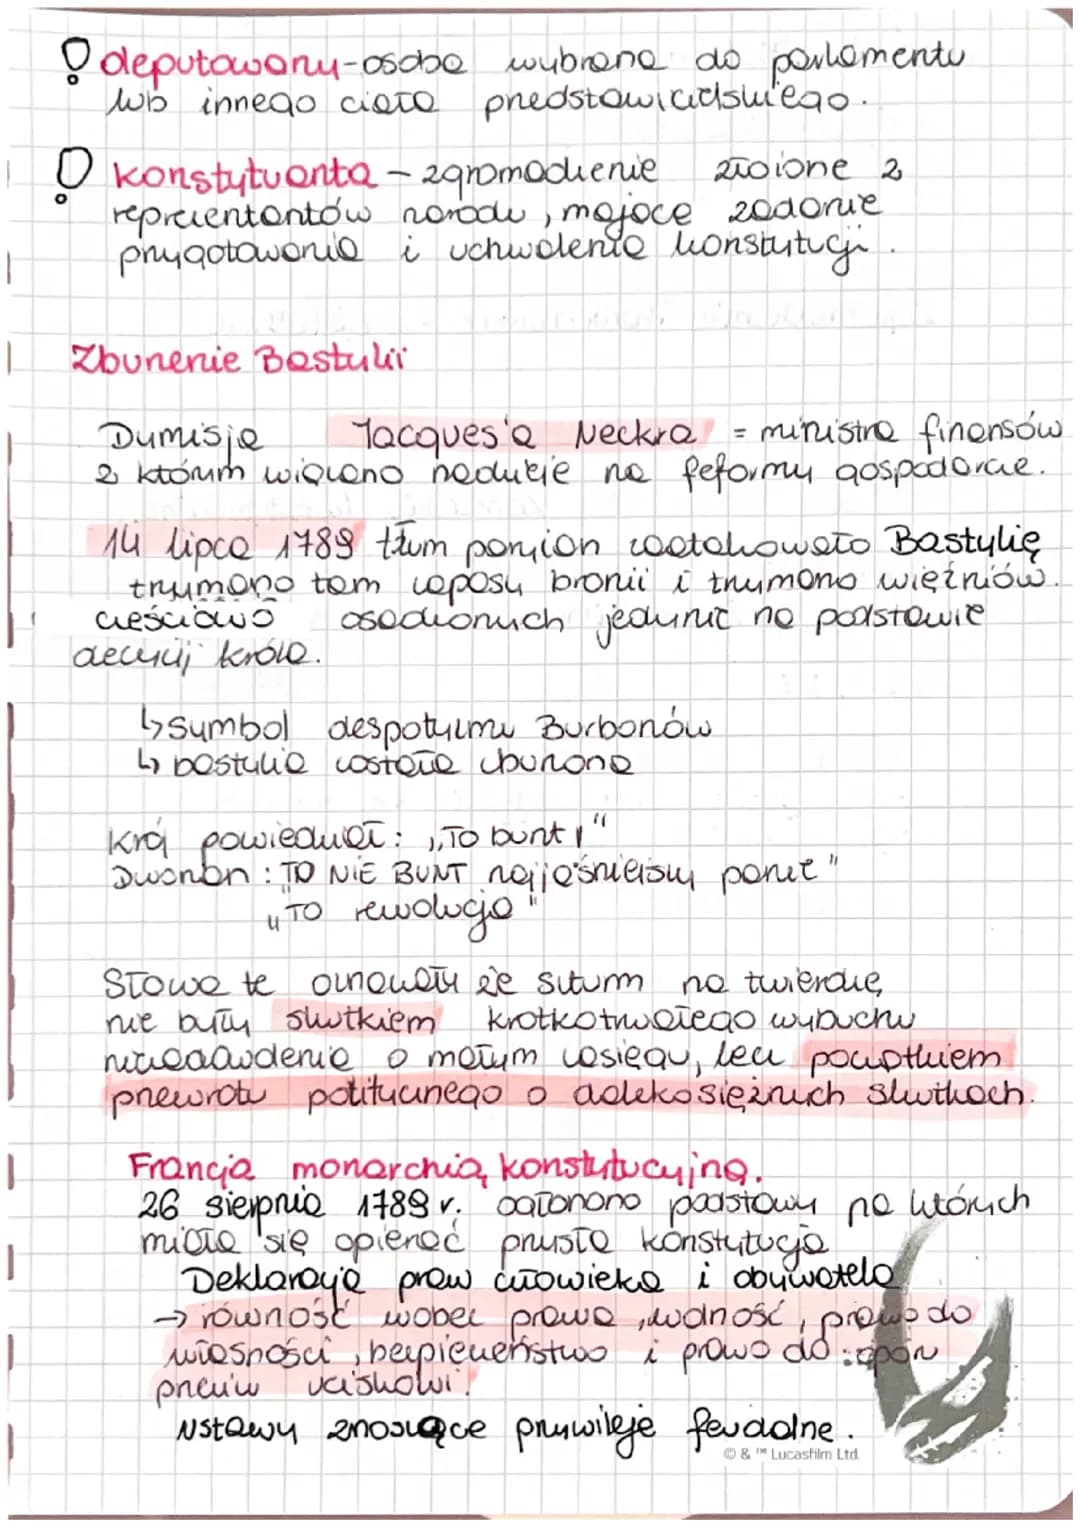 deputowany - osoba wybrana do parlamentu
lub innego ciała przedstawicielskiego.
konstytuanta - zgromadzenie złożone z
reprezentantów narodu, mające zadanie
przygotowania i uchwalenie konstytucji.
Zburzenie Bastylii
Dymisja Jacques'a Neckra = ministra finansów
z którym wiązano nadzieje na reformy gospodarcze.
14 lipca 1789 tłum paryżan zaatakowało Bastylię
trzymano tam zapasy bronii i trzymano więźniów.
częściowo osadzonych jedynie na podstawie
decyzji króla.
↳ symbol despotyzmu Burbonów
↳ bastylia została zburzona
Król powiedział: „To bunt!"
Dworzan: „TO NIE BUNT najjaśniejszy panie"
„TO rewolucja"
Słowa te oznaczały że szturm na twierdzę,
nie były skutkiem krótkotrwałego wybuchu
niezadowolenia o małym zasięgu, lecz początkiem
przewrotu politycznego o dalekosiężnych skutkach.
Francja monarchią konstytucyjną.
26 sierpnia 1789 r. podstawy na których
miała się opierać przyszła konstytucja
Deklaracja praw człowieka i obywatela
→ równość wobec prawa, wolność, prawo do
własności, bezpieczeństwo i prawo do opór
przeciw uciskowi.
Ustawy znoszące przywileje feudalne.
© & ™ Lucasfilm Ltd.